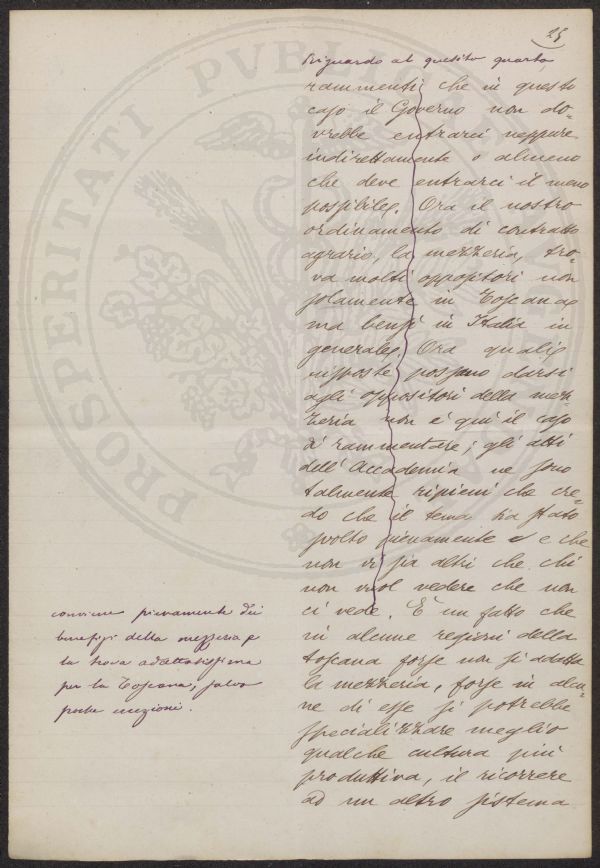 25
Riguardo al quesito quarto,
rammenti che in questo
caso il Governo non do-
vrebbe entrarci neppure
indirettamente o almeno
che deve entrarci il meno
possibile. Ora il nostro
ordinamento di contratto
agrario, la mezzeria, tro-
va molti oppositori non
solamente in Toscana
ma bensì in Italia in
generale. Ora quali
risposte possano darsi
agli oppositori della mez-
zeria non è qui il caso
di rammentare; gli atti
dell'Accademia ne sono
talmente ripieni che cre-
do che il tema sia stato
svolto pienamente e che
non vi sia altri che chi
non vuol vedere che non
ci vede. È un fatto che
in alcune regioni della
Toscana forse non si adatta
la mezzeria, forse in alcu-
ne di esse si potrebbe
specializzare meglio
qualche cultura più
produttiva, il ricorrere
ad un altro sistema
conviene pienamente dei
benefizi della mezzeria e
la trova adattatissima
per la Toscana, salvo
poche eccezioni.
PROSPERITATI PUBLICAE